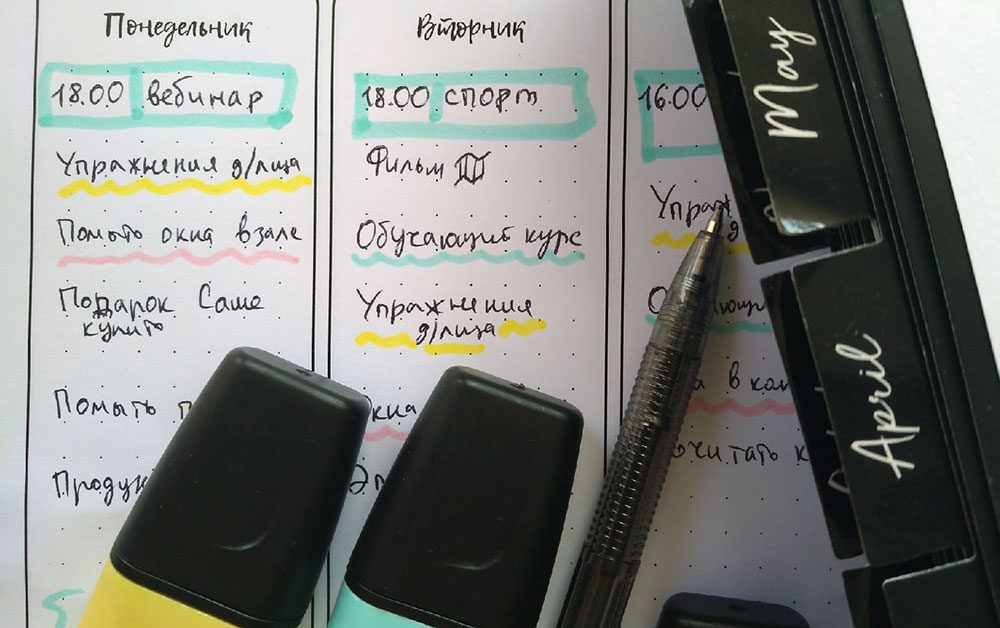 Понедельник
18.00 вебинар
Упражнения д/лица
Помыть окна в зале
Подарок Саше
купить
Помыть
Вторник
18.00 спорт
Фильм
Обучающий курс
Упражнения
д/лица
16.00
May
April